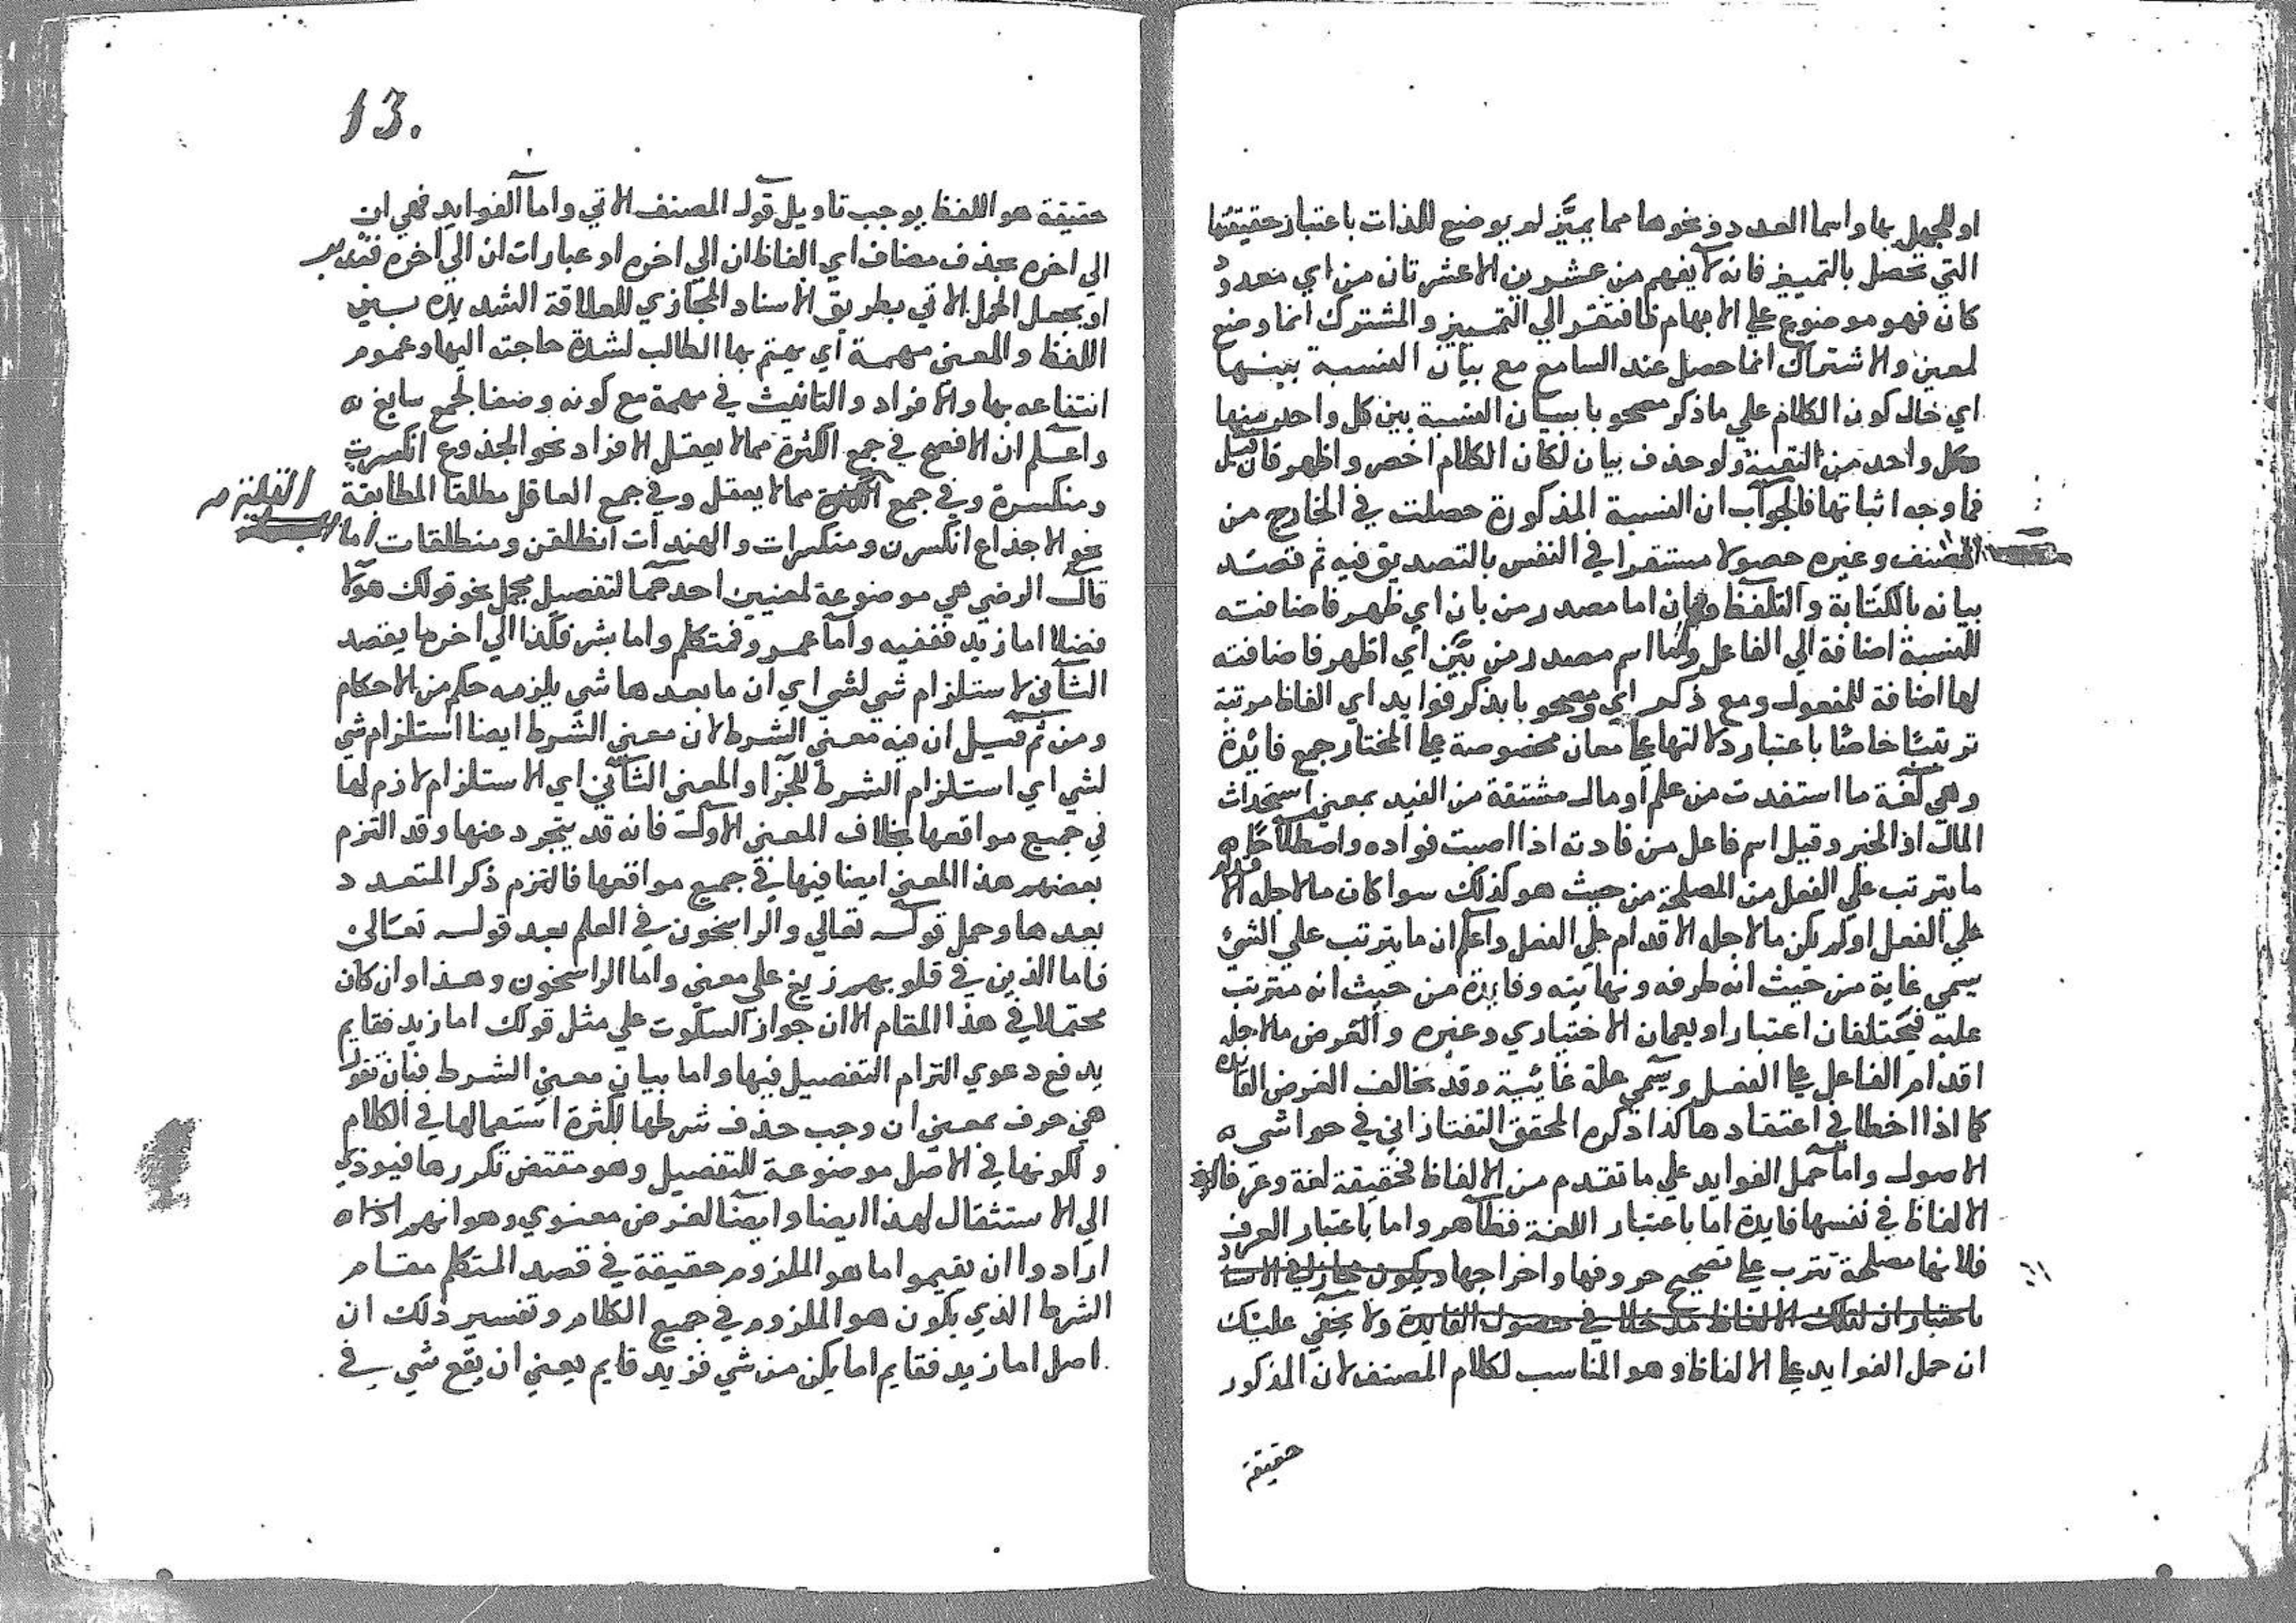 او للجهل بها واسما العدد ونحوها مما يميَّز لم يوضع للذات باعتبار حقيقتها
التي تحصل بالتمييز فانه لا يفهم من عشرين الا عشرتان من اي معدود
كان فهو موضوع على الابهام فافتقر الي التمييز والمشترك انما وضع
لمعين والاشتراك انما حصل عند السامع مع بيان النسبة بينها
اي حال كون الكلام علي ما ذكر مصحوبا ببيان النسبة بين كل واحد منها
وكل واحد من البقية ولو حذف بيان لكان الكلام اخصر واظهر فان قيل
فما وجه اثباتها فالجواب ان النسبة المذكورة حصلت في الخارج من
المصنف وغيره حصولا مستقرا في النفس بالتصديق فيه ثم قصد
بيانه بالكتابة والتلفظ وبيان اما مصدر من بان اي ظهر فاضافته
للنسبة اضافة الي الفاعل واما اسم مصدر من بيَّن اي اظهر فاضافته
لها اضافة للمفعول ومع ذكر اي ومصحوبا بذكر فوايد اي الفاظ مرتبة
ترتيبًا خاصًا باعتبار دلالتها على معان مخصوصة على المختار جمع فائدة
وهي لغة ما استفدت من علم او مال مشتقة من الفيد بمعني استحداث
المال اذ الخير وقيل اسم فاعل من فادته اذا اصبت فواده واصطلاحًا
ما يترتب علي الفعل من المصلحة من حيث هو كذلك سوا كان ما لاجله الاقدام
علي الفعل او لم يكن ما لاجله الاقدام علي الفعل واعلم ان ما يترتب علي الشئ
يسمي غاية من حيث انه طرفه ونهايته وفايدة من حيث انه مترتب
عليه فيختلفان اعتبارا ويعمان الاختياري وغيره والغرض ما لاجله
اقدام الفاعل على الفعل ويسمي علة غائية وقد يخالف الغرض الفائدة
كما اذا اخطا في اعتقادها كذا ذكره المحقق التفتازاني في حواشي
الاصول واما حمل الفوايد علي ما تقدم من الالفاظ فحقيقة لغة وعرفا لان
الالفاظ في نفسها فايدة اما باعتبار اللغة فظاهر واما باعتبار العرف
فلانها مصلحة تترب على تصحيح حروفها واخراجها ويكون مجاز في الاسناد
باعتبار ان لتلك الالفاظ مدخلا في حصول الفايدة ولا يخفي عليك
ان حمل الفوايد على الالفاظ وهو المناسب لكلام المصنف لان المذكور
حقيقة
13.
حقيقة هو اللفظ يوجب تاويل قول المصنف الاتي واما الفوايد فهي ان
الي اخره بحذف مضاف اي الفاظ ان الي اخره او عبارات ان الي اخره فتدبر
او يجعل الحمل الاتي بطريق الاسناد المجازي للعلاقة الشديدة بين
اللفظ والمعني مهمة اي يهتم بها الطالب لشدة حاجته اليها وعموم
انتفاعه بها والافراد والتانيث في مهمة مع كونه وصفا لجمع سايغ
واعلم ان الافصح في جمع الكثرة مما لا يعقل الافراد نحو الجذوع انكسرت
ومنكسرة وفي جمع القلة مما لا يعقل وفي جمع العاقل مطلقا المطابقة
نحو الاجذاع انكسرن ومنكسرات والهندات انطلقن ومنطلقات اما
قال الرضي هي موضوعة لمعنيين احدهما لتفصيل مجمل نحو قولك هولا
فضلا اما زيد ففقيه واما عمرو فمتكلم واما بشر فكذا الي اخر ما يقصد
الثاني لاستلزام شي لشي اي ان ما بعدها شي يلزمه حكم من الاحكام
ومن ثم قيل ان فيه معني الشرط لان معني الشرط ايضا استلزام شي
لشي اي استلزام الشرط للجزا والمعني الثاني اي الاستلزام لازم لها
في جميع مواقعها بخلاف المعني الاول فانه قد يتجرد عنها وقد التزم
بعضهم هذا المعني ايضا فيها في جميع مواقعها فالتزم ذكر المتعدد
بعدها وحمل قوله تعالي والراسخون في العلم بعد قوله تعالى
فاما الذين في قلوبهم زيغ على معني واما الراسخون وهذا وان كان
محتملا في هذا المقام الا ان جواز السكوت علي مثل قولك اما زيد فقايم
يدفع دعوي التزام التفصيل فيها واما بيان معني الشرط فبان تقول
هي حرف بمعني ان وجب حذف شرطها لكثرة استعمالها في الكلام
ولكونها في الاصل موضوعة للتفصيل وهو مقتض تكررها فيودي
الي الاستثقال لهذا ايضا وايضا لغرض معنوي وهو انهم
ارادوا ان يقيموا ما هو الملزوم حقيقة في قصد المتكلم مقام
الشرط الذي يكون هو الملزوم في جميع الكلام وتفسير ذلك ان
اصل اما زيد فقايم اما يكن من شي فزيد قايم يعني ان يقع شي في